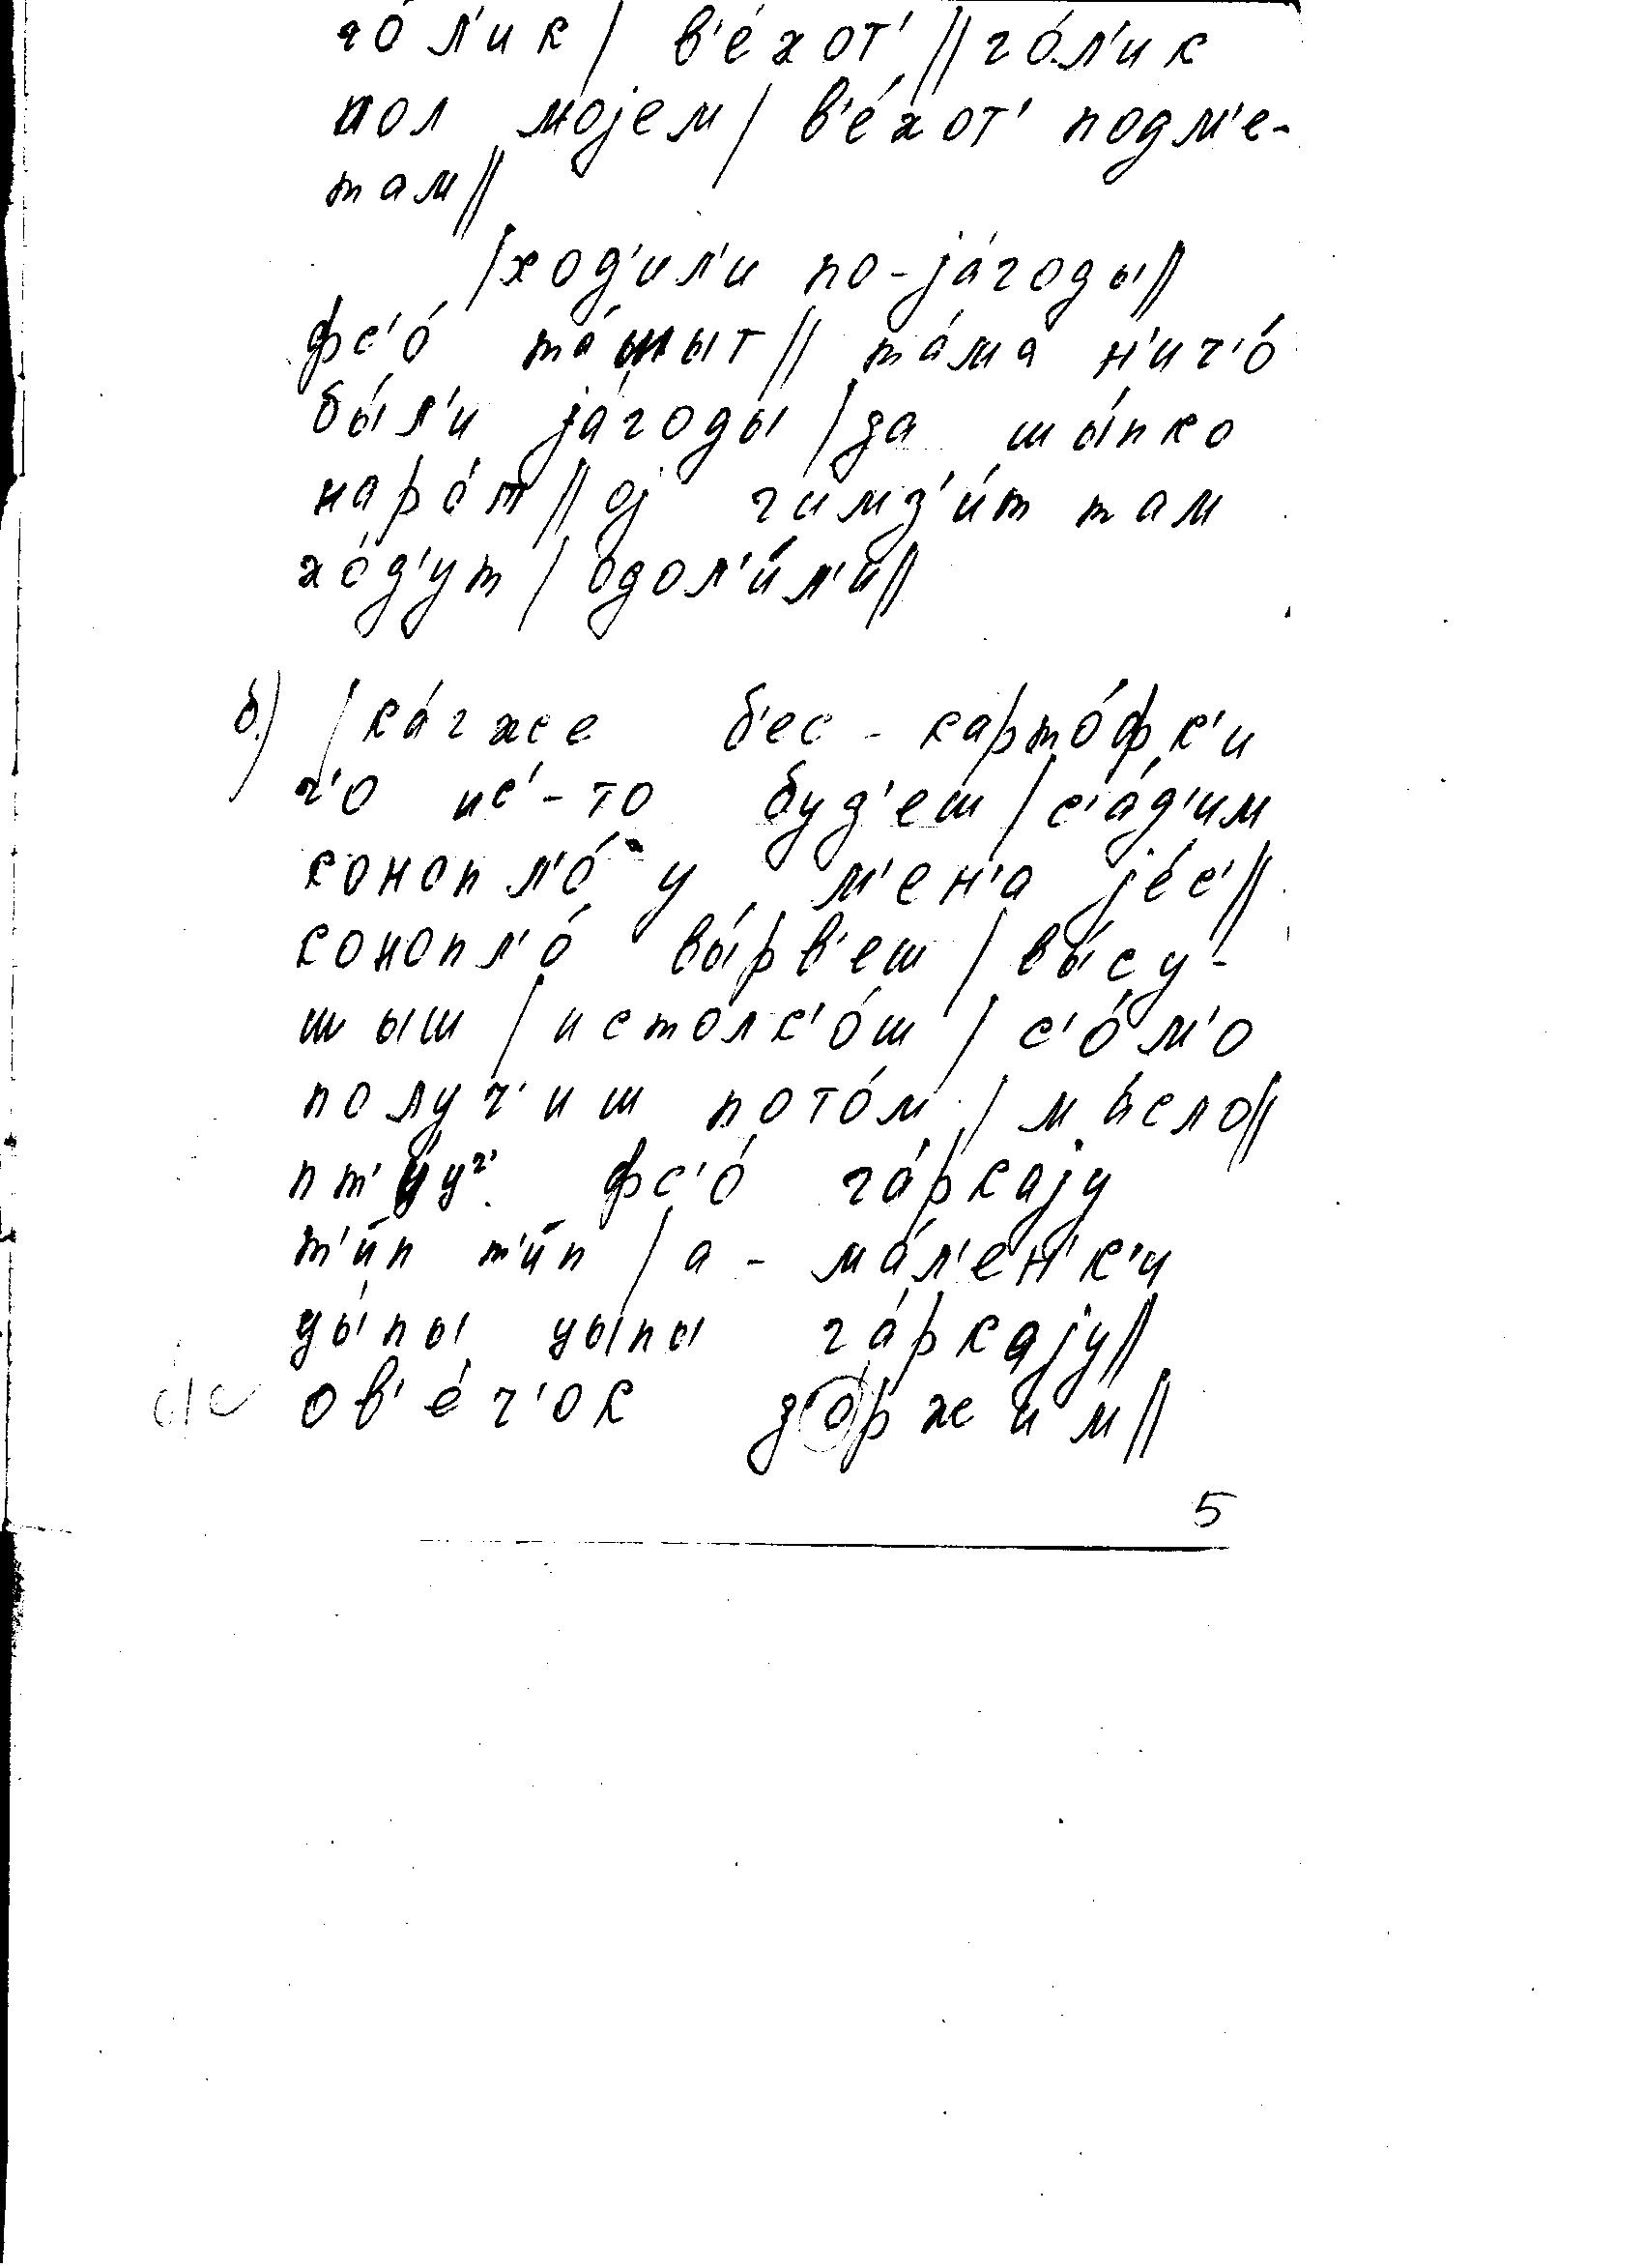 го́л'ик / в'е́хот' // го́л'ик
пол мојем / в'е́хот' подм'е-
там //
/ ход'ил'и по-ја́годы //
фс'о́ та́шыт // та́ма н'ич'о́
бы́л'и ја́годы / да шы́пко
наро́т // ој гимз'и́т там
хо́д'ут / одол'и́л'и //
б.) / ка́гже б'ес - карто́фк'и
ч'о ис'-то буд'еш / с'а́д'им
конопл'о́ у м'ен'а је́с' //
конопл'о́ вы́рв'еш / вы́су-
шыш / истолк'о́ш / с'о́м'о
получ'иш пото́м / ма́сло //
фс'о́ га́ркају
т'и́п т'и́п / а - ма́л'ен'к'и
цы́пы цыпы га́ркају //
ов'е́ч'ок до́ржим //
5